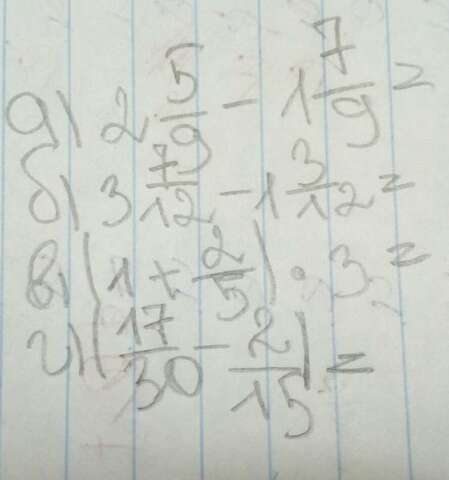 а) 2 5/9 - 1 7/9 =
б) 3 7/12 - 1 3/12 =
в) (1 + 2/5) · 3 =
г) (17/30 - 2/15) =